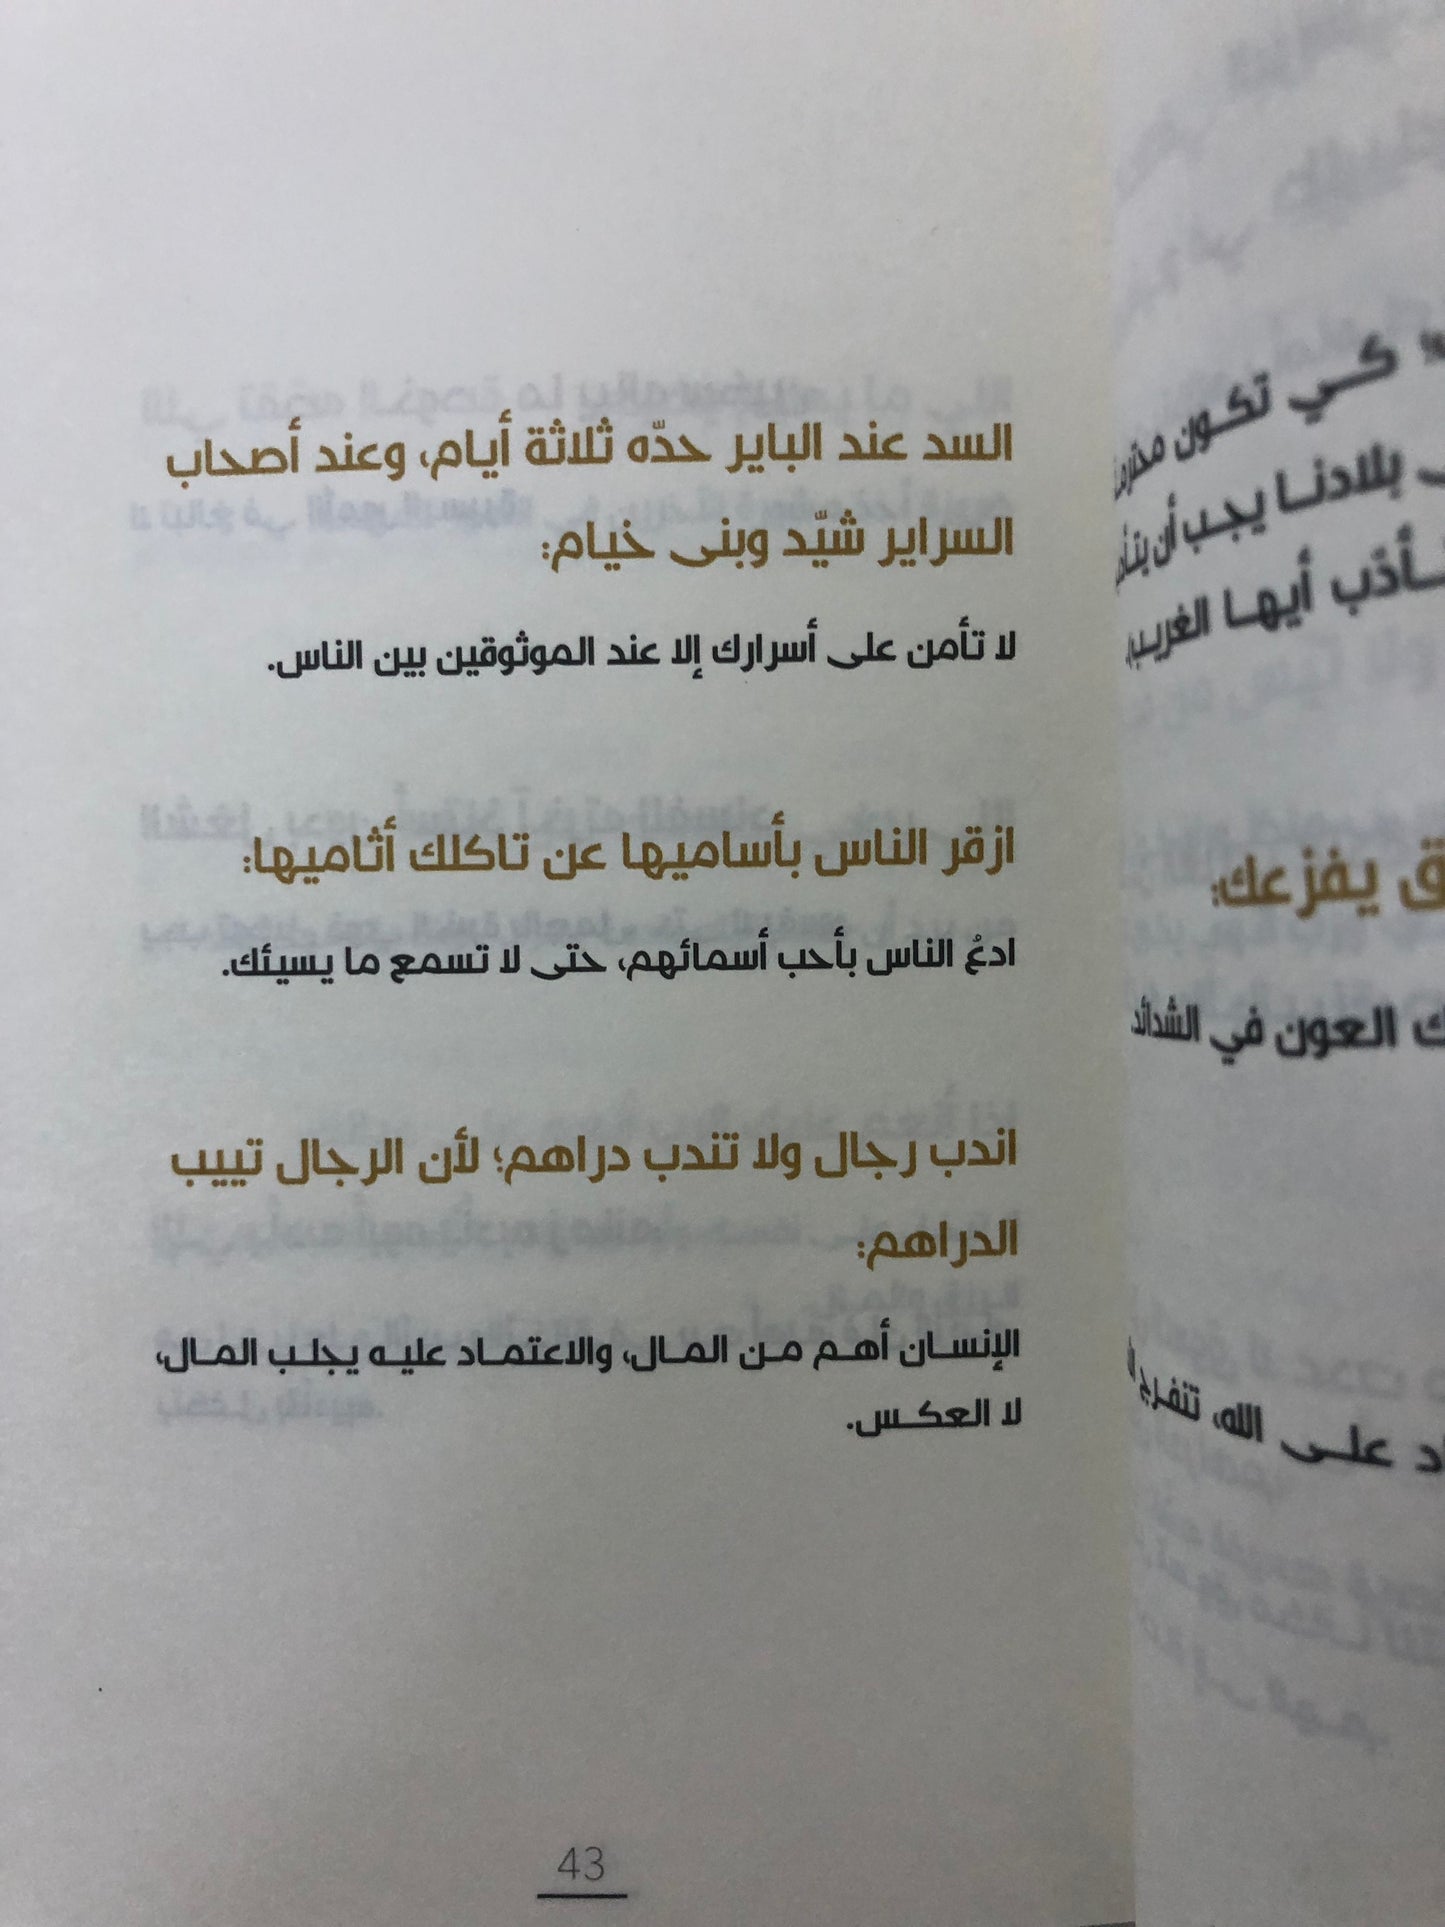 السد عند الباير حدّه ثلاثة أيام، وعند أصحاب
السراير شيّد وبنى خيام:
لا تأمن على أسرارك إلا عند الموثوقين بين الناس.
ازقر الناس بأساميها عن تاكلك أثاميها:
ادعُ الناس بأحب أسمائهم، حتى لا تسمع ما يسيئك.
اندب رجال ولا تندب دراهم؛ لأن الرجال تييب
الدراهم:
الإنسان أهم من المال، والاعتماد عليه يجلب المال،
لا العكس.
43
كي تكون محترما
بلادنا يجب أن
أيها الغريب
يفزعك:
العون في الشدائد
على الله، تنفرج